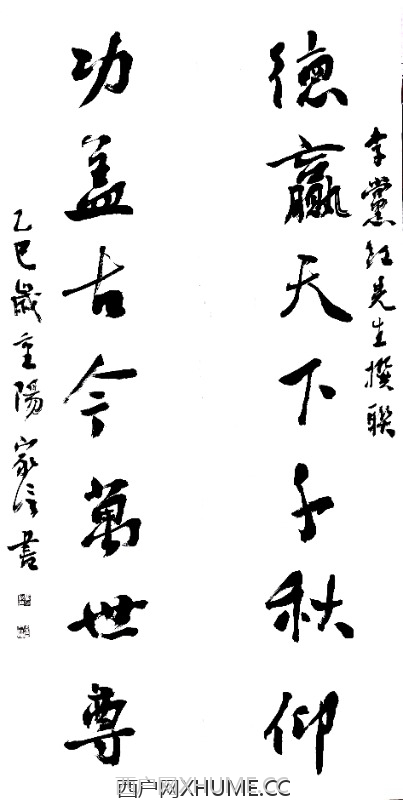 李黨红先生撰聯
德贏天下千秋仰
功盖古今萬世尊
乙巳歲重陽 家信書
西户网XHUME.CC